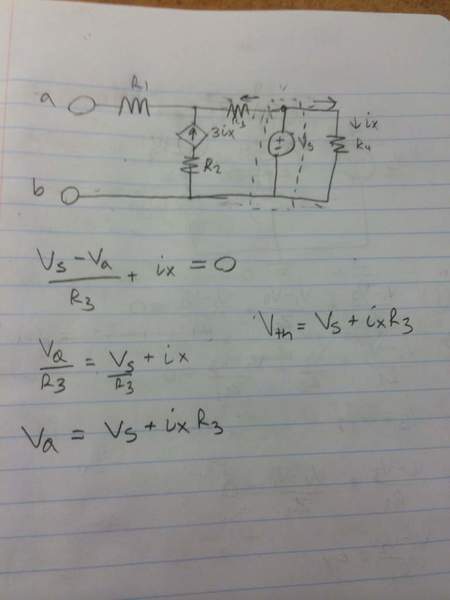 R1
a
R3
ix
3ix
Vs
R4
R2
b
Vs - Va
R3
+ ix = 0
Vth = Vs + ixR3
Va
R3
= Vs
R3
+ ix
Va = Vs + ixR3